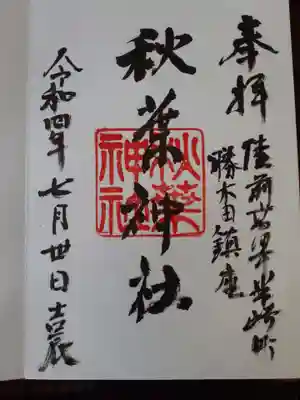 奉拝
陸前高田市米崎町
勝木田鎮座
秋葉神社
秋葉
神社
令和四年 七月廿日吉辰